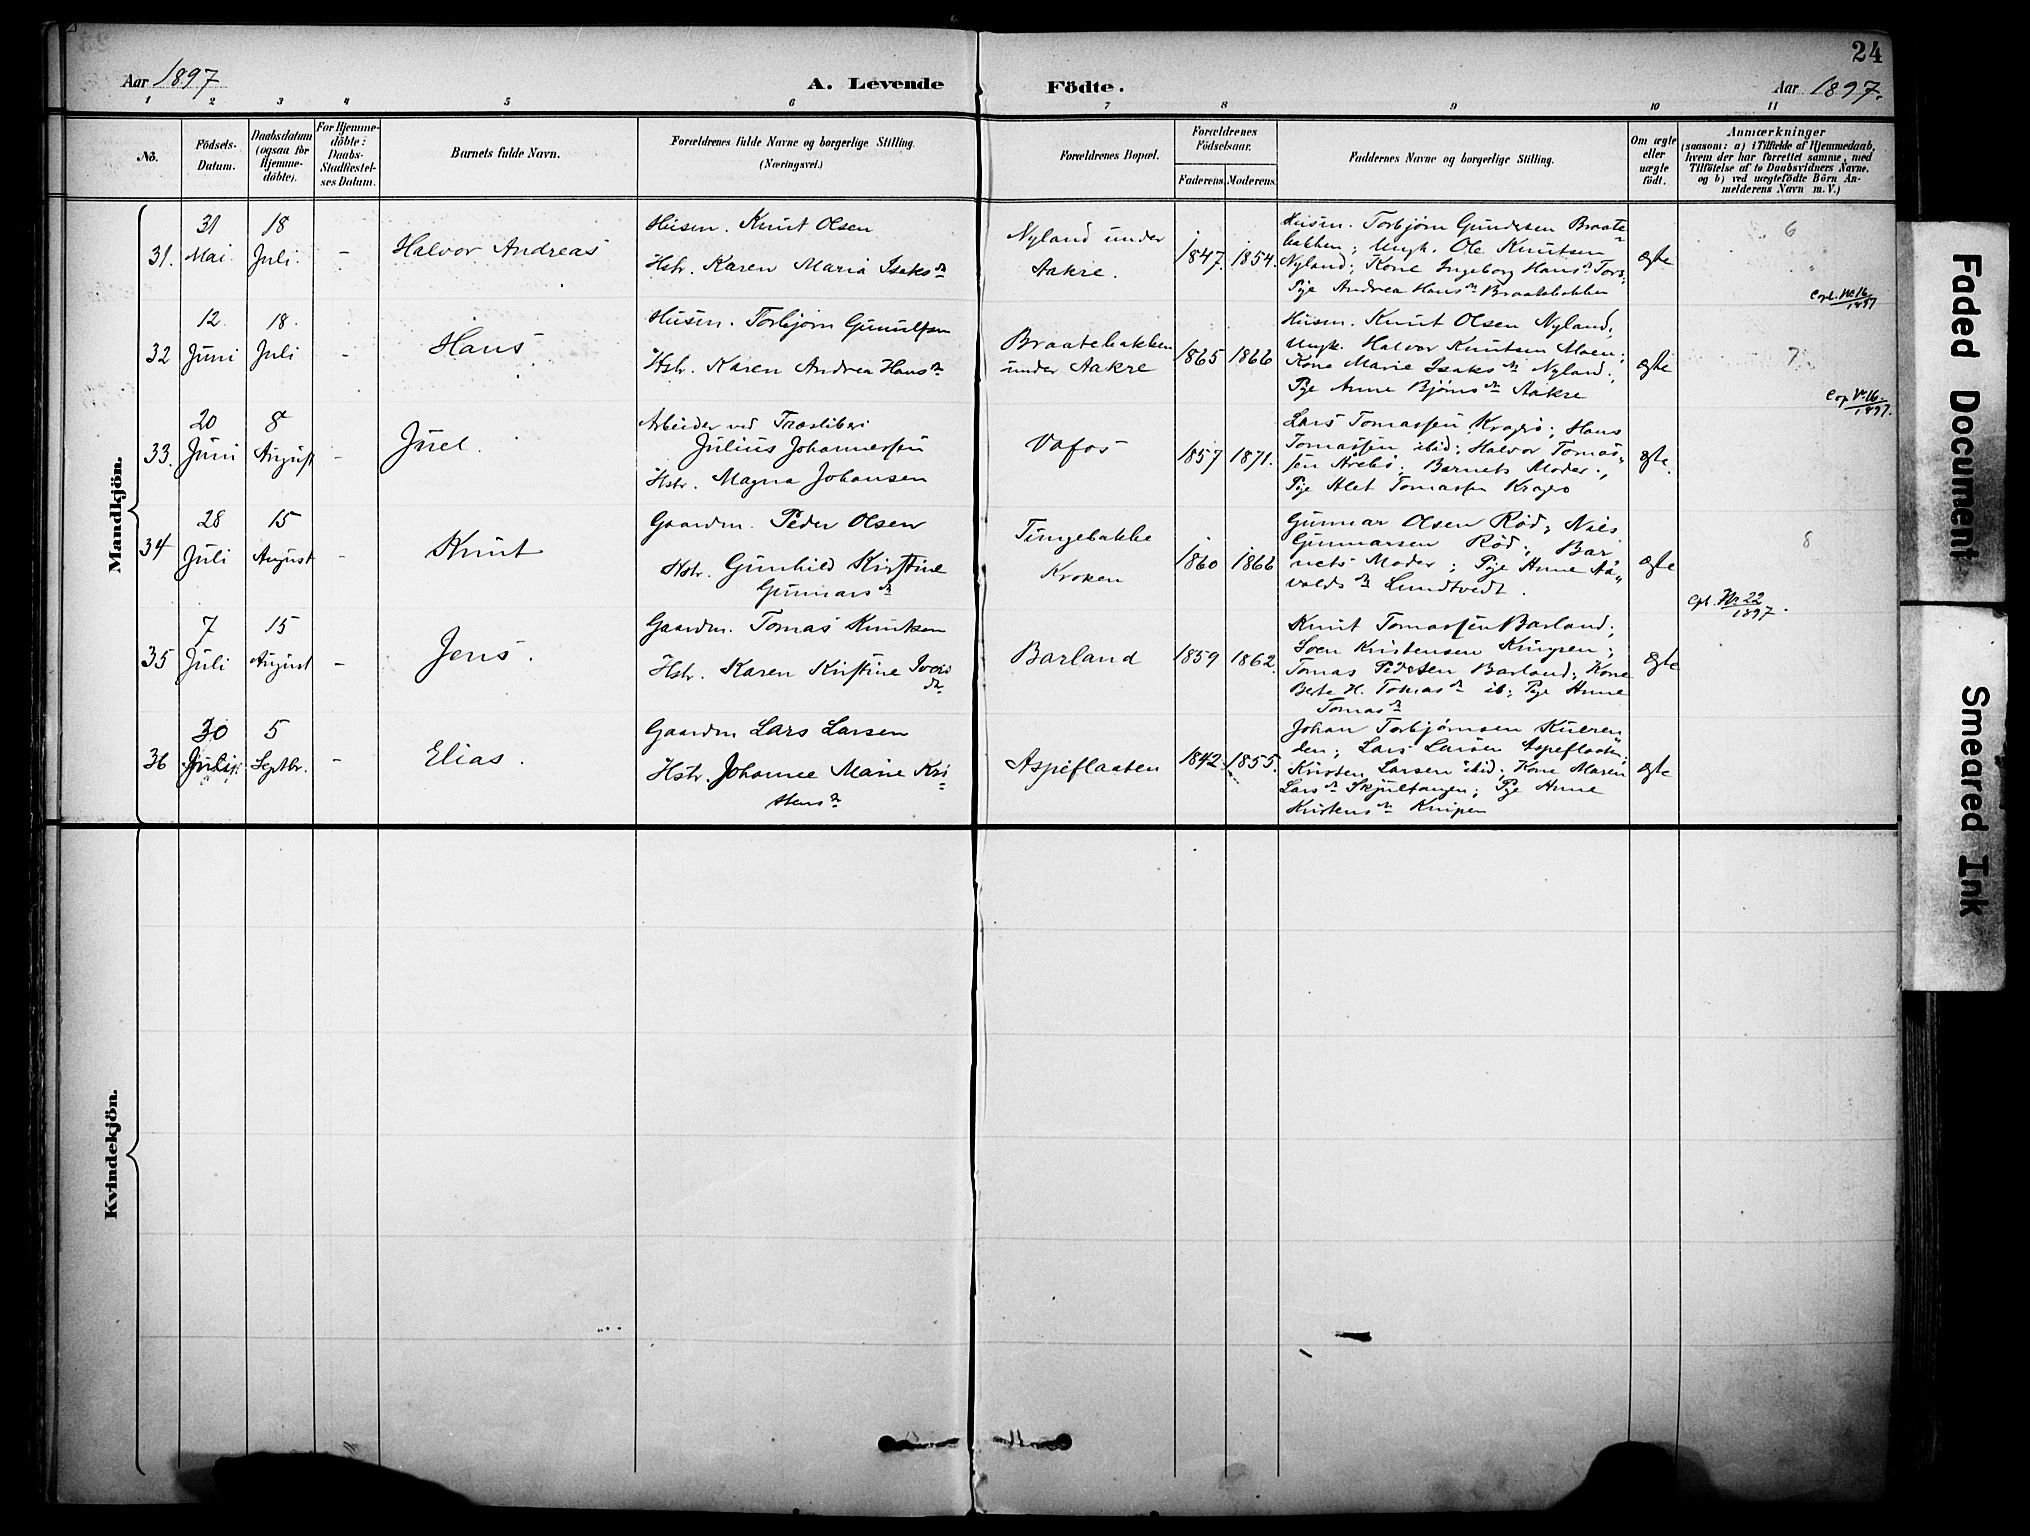 24
Aar 1897
A. Levende Födte.
Aar 1897.
1 2 3 4 5 6 7 8 9 10 11
No.
Födsels-
Datum.
Daabsdatum
(ogsaa for
Hjemme-
döbte).
For Hjemme-
döbte:
Daabs-
Stadfæstel-
ses Datum.
Barnets fulde Navn.
Forældrenes fulde Navne og borgerlige Stilling.
(Næringsvei.)
Forældrenes Bopæl.
Forældrenes
Födselsaar.
Faderens. Moderens.
Faddernes Navne og borgerlige Stilling.
Om ægte
eller
uægte
födt.
Anmærkninger
(saasom: a) i Tilfælde af Hjemmedaab,
hvem der har forrettet samme, med
Tilföielse af to Daabsvidners Navne.
og b) ved uægtefödte Börn An-
melderens Navn m. V.)
Mandkjön.
31.
31
Mai.
18
Juli.
-
Halvor Andreas
Husm. Knut Olsen
Hstr. Karen Maria Isaksdr
Nyland under
Aakre.
1847. 1854.
Husm. Torbjørn Gundesen Braate-
bakken; Ungk. Ole Knutsen
Nyland; Kone Ingeborg Hansdr Tors;
Pige Andrea Hansdr Braatebakken
ægte
6
Cpl. No 16/1897
32
12.
Juni
18.
Juli
-
Hans
Husm. Torbjørn Gunulfsen
Hstr. Karen Andrea Hansdr
Braatebakken
under Aakre
1865 1866
Husm. Knut Olsen Nyland;
Ungk. Halvor Knutsen Moen;
Kone Marie Isaksdr Nyland;
Pige Anne Bjørnsdr Aakre
ægte
7
Cop No 16/1897.
33.
20
Juni
8
August
-
Juel.
Arbeider ved Træsliberi
Julius Johannessen
Hstr. Magna Johansen
Vafos
1857 1871.
Lars Tomassen Kragerø; Hans
Tomassen ibid; Halvor Tomas-
sen Årebø; Barnets Moder;
Pige Alet Tomassen Kragerø
ægte.
34
28
Juli
15
August
-
Knut
Gaardm. Peder Olsen
Hstr. Gunhild Kirstine
Gunnarsdr
Tingebakke
Kroken
1860 1866
Gunnar Olsen Rød; Niels
Gunnarsen Rød; Bar-
nets Moder; Pige Anne Aa-
voldsdr Lundtvedt.
ægte
8
Cpl. No 22/1897.
35
7
Juli
15
August
-
Jens.
Gaardm. Tomas Knutsen
Hstr. Karen Kristine Ivers
dr
Barland
1859 1862.
Knut Tomassen Barland;
Sven Kristensen Knipen;
Tomas Pedersen Barland; Kone
Berte H. Tomasdr ib; Pige Anne
Tomasdr
ægte
36
30
Juli
5
Septbr.
-
Elias.
Gaardm Lars Larsen
Hstr. Johanne Marie Kri-
stensdr
Aspeflaaten
1842. 1855.
Johan Torbjørnsen
den; Lars Larsen Aspeflaaten;
Kristen Larsen ibid; Kone Maren
Larsdr Skjultangen; Pige Anne
Kristensdr Knipen
ægte
Kvindekjön.
Faded Document
Smeared Ink